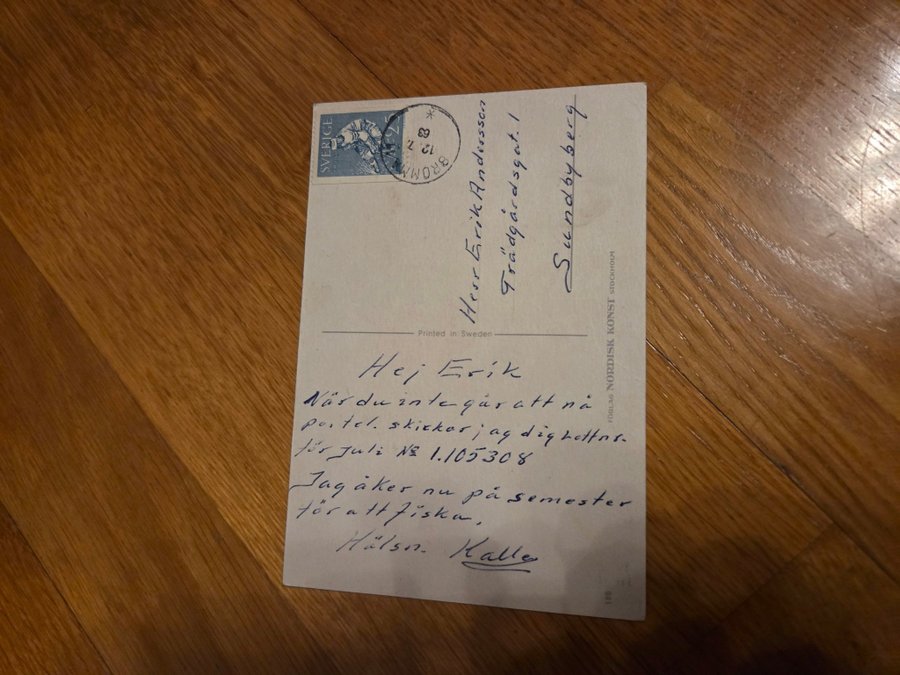 Hej Erik
När du inte går att nå
per tel. skickar jag dig Lottnr.
för Juli № 1.105308
Jag åker nu på semester
för att fiska.
Hälsn. Kalle
SVERIGE 25
BROMMA
12.7
63
*
Herr Erik Andersson
Trädgårdsgat. 1
Sundbyberg
Printed in Sweden
FÖRLAG NORDISK KONST STOCKHOLM